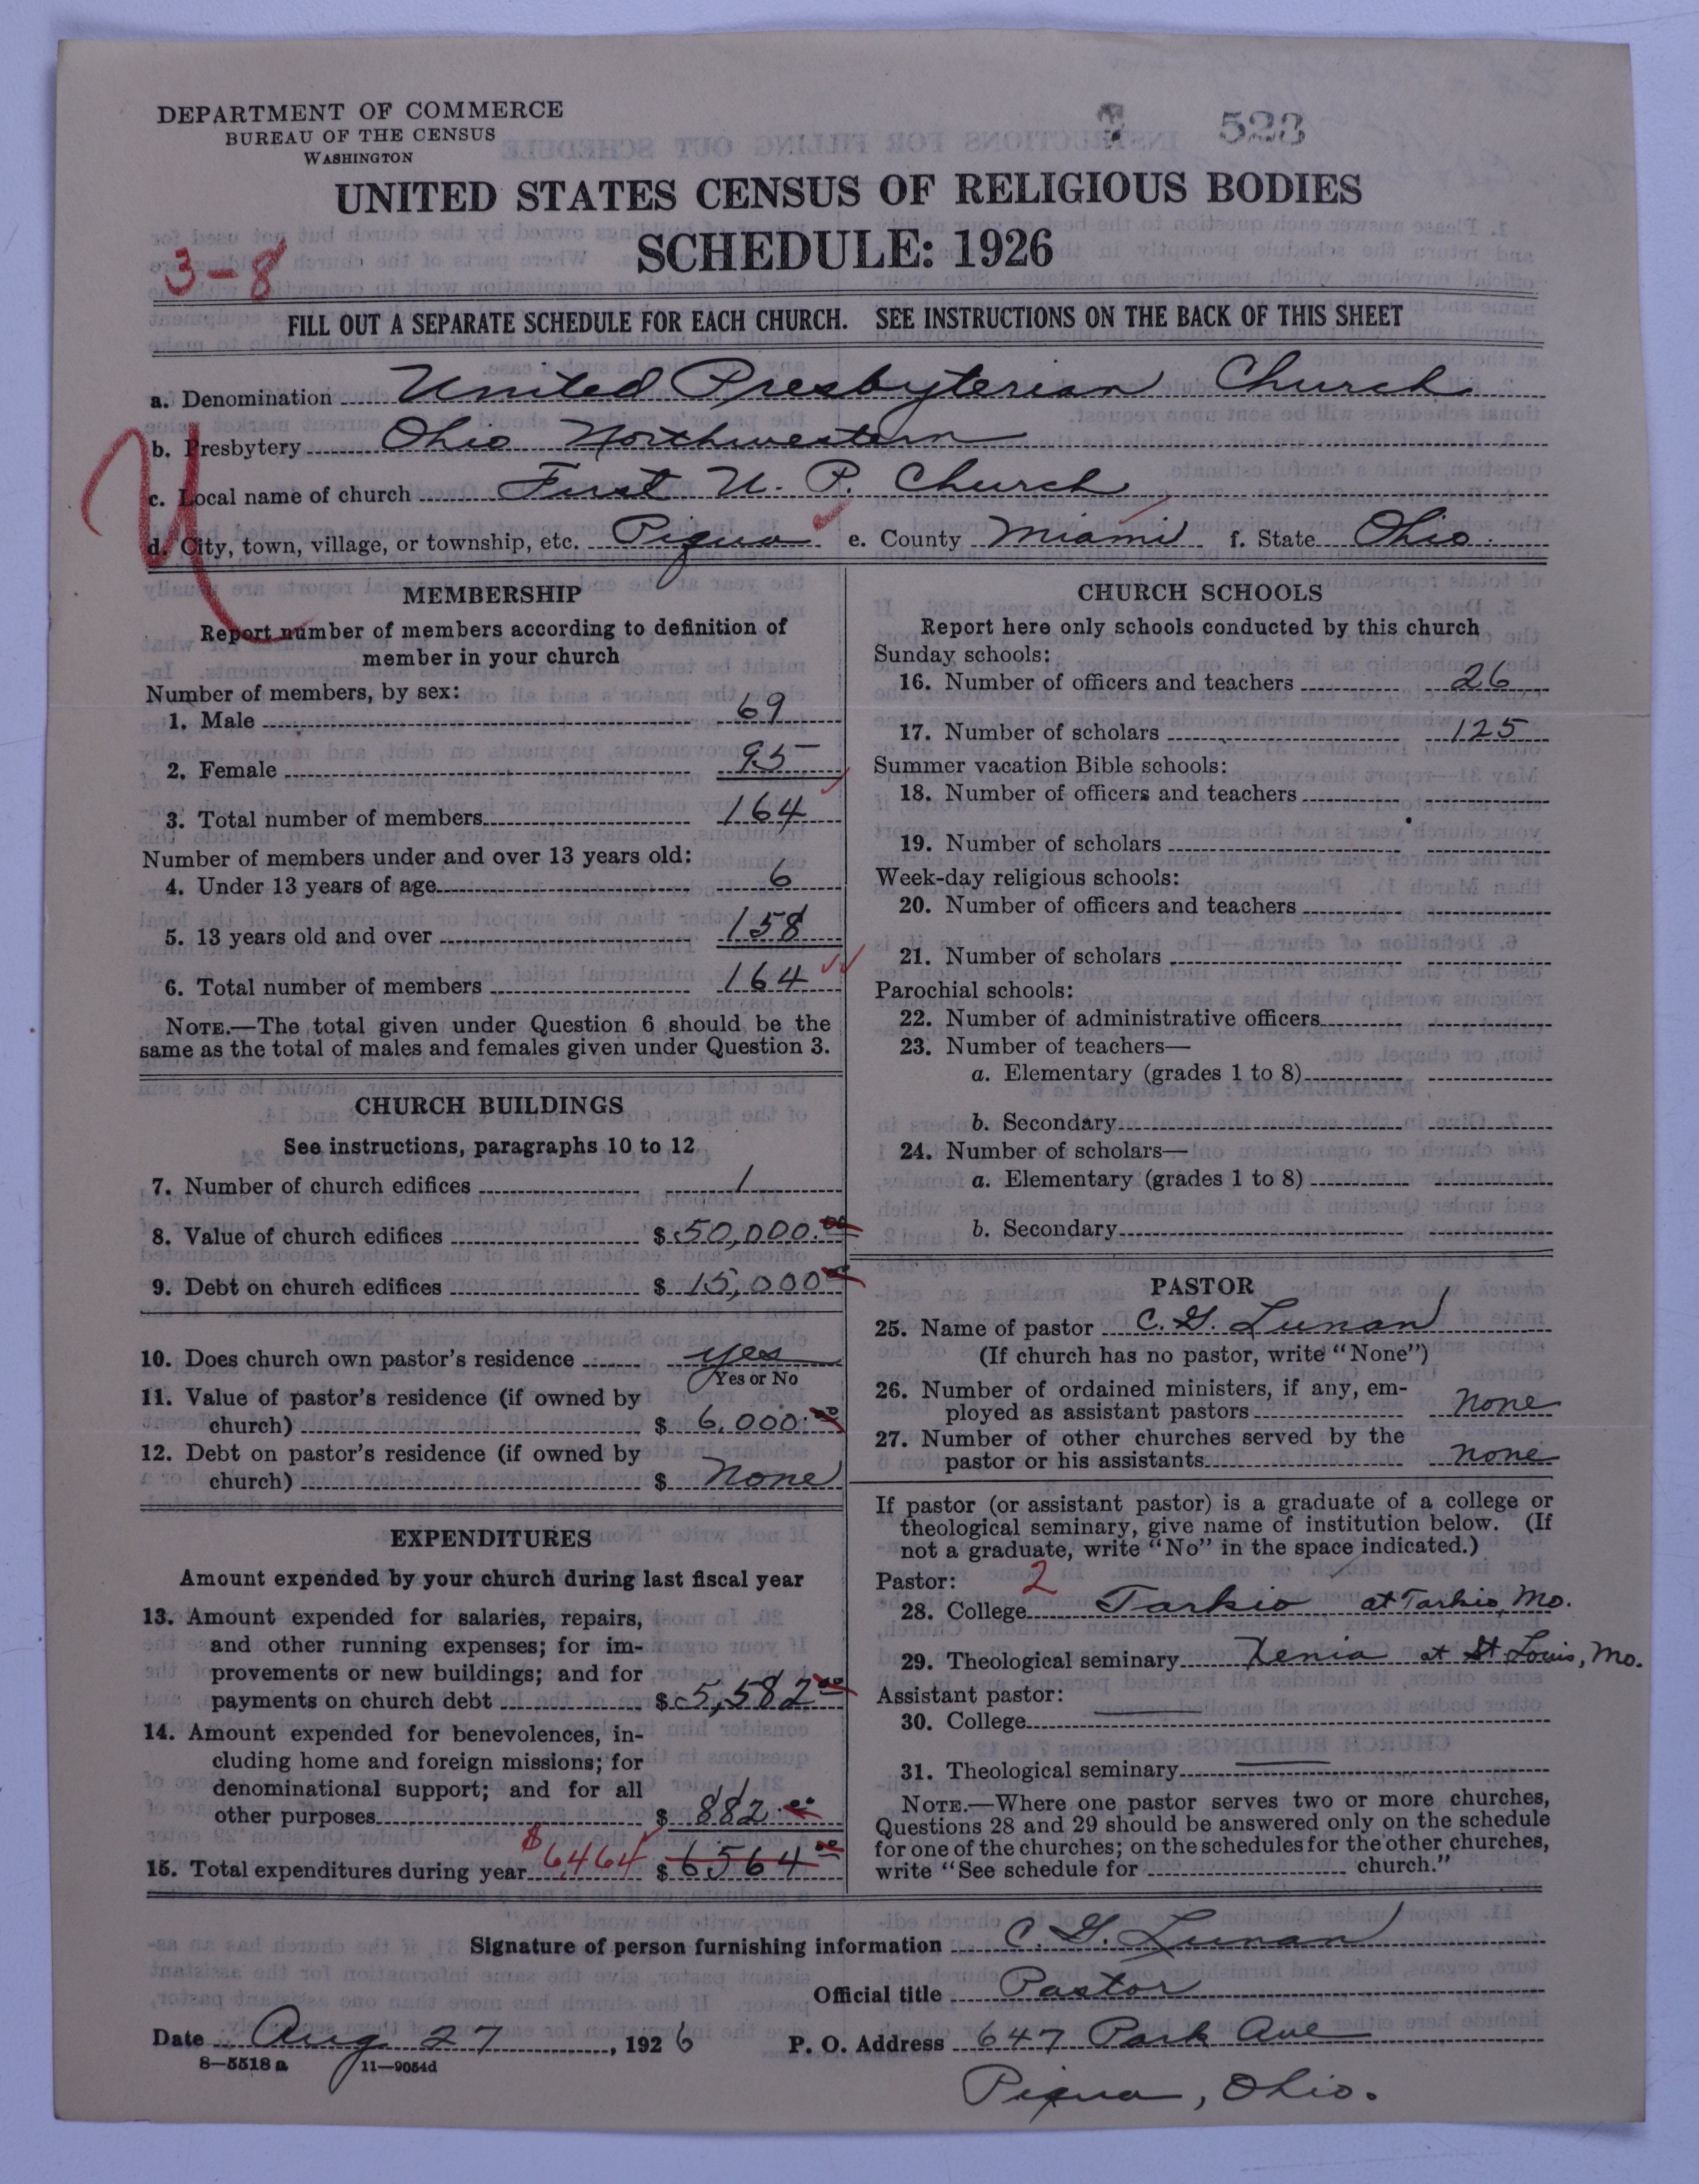 DEPARTMENT OF COMMERCE
BUREAU OF THE CENSUS
WASHINGTON
523
UNITED STATES CENSUS OF RELIGIOUS BODIES
SCHEDULE: 1926
3-8
FILL OUT A SEPARATE SCHEDULE FOR EACH CHURCH. SEE INSTRUCTIONS ON THE BACK OF THIS SHEET
a. Denomination United Presbyterian Church
b. Presbytery Ohio Northwestern
c. Local name of church First U. P. Church
d. City, town, village, or township, etc. Piqua e. County Miami f. State Ohio.
MEMBERSHIP
Report number of members according to definition of
member in your church
Number of members, by sex:
1. Male 69
2. Female 95
3. Total number of members 164
Number of members under and over 13 years old:
4. Under 13 years of age 6
5. 13 years old and over 158
6. Total number of members 164
NOTE.—The total given under Question 6 should be the
same as the total of males and females given under Question 3.
CHURCH BUILDINGS
See instructions, paragraphs 10 to 12
7. Number of church edifices 1
8. Value of church edifices $ 50,000.00
9. Debt on church edifices $ 15,000.00
10. Does church own pastor's residence yes
Yes or No
11. Value of pastor's residence (if owned by
church) $ 6,000.00
12. Debt on pastor's residence (if owned by
church) $ none
EXPENDITURES
Amount expended by your church during last fiscal year
13. Amount expended for salaries, repairs,
and other running expenses; for im-
provements or new buildings; and for
payments on church debt $ 5,582.00
14. Amount expended for benevolences, in-
cluding home and foreign missions; for
denominational support; and for all
other purposes $ 882.00
15. Total expenditures during year $6464 $ 6564.00
CHURCH SCHOOLS
Report here only schools conducted by this church
Sunday schools:
16. Number of officers and teachers 26
17. Number of scholars 125
Summer vacation Bible schools:
18. Number of officers and teachers
19. Number of scholars
Week-day religious schools:
20. Number of officers and teachers
21. Number of scholars
Parochial schools:
22. Number of administrative officers
23. Number of teachers—
a. Elementary (grades 1 to 8)
b. Secondary
24. Number of scholars—
a. Elementary (grades 1 to 8)
b. Secondary
PASTOR
25. Name of pastor C. G. Lunan
(If church has no pastor, write "None")
26. Number of ordained ministers, if any, em-
ployed as assistant pastors none
27. Number of other churches served by the
pastor or his assistants none
If pastor (or assistant pastor) is a graduate of a college or
theological seminary, give name of institution below. (If
not a graduate, write "No" in the space indicated.)
Pastor: 2
28. College Tarkio at Tarkio, Mo.
29. Theological seminary Xenia at St Louis, Mo.
Assistant pastor:
30. College
31. Theological seminary
NOTE.—Where one pastor serves two or more churches,
Questions 28 and 29 should be answered only on the schedule
for one of the churches; on the schedules for the other churches,
write "See schedule for church."
Signature of person furnishing information C. G. Lunan
Official title Pastor
Date Aug 27, 1926 P. O. Address 647 Park Ave
8-5518 a 11-9054d
Piqua, Ohio.